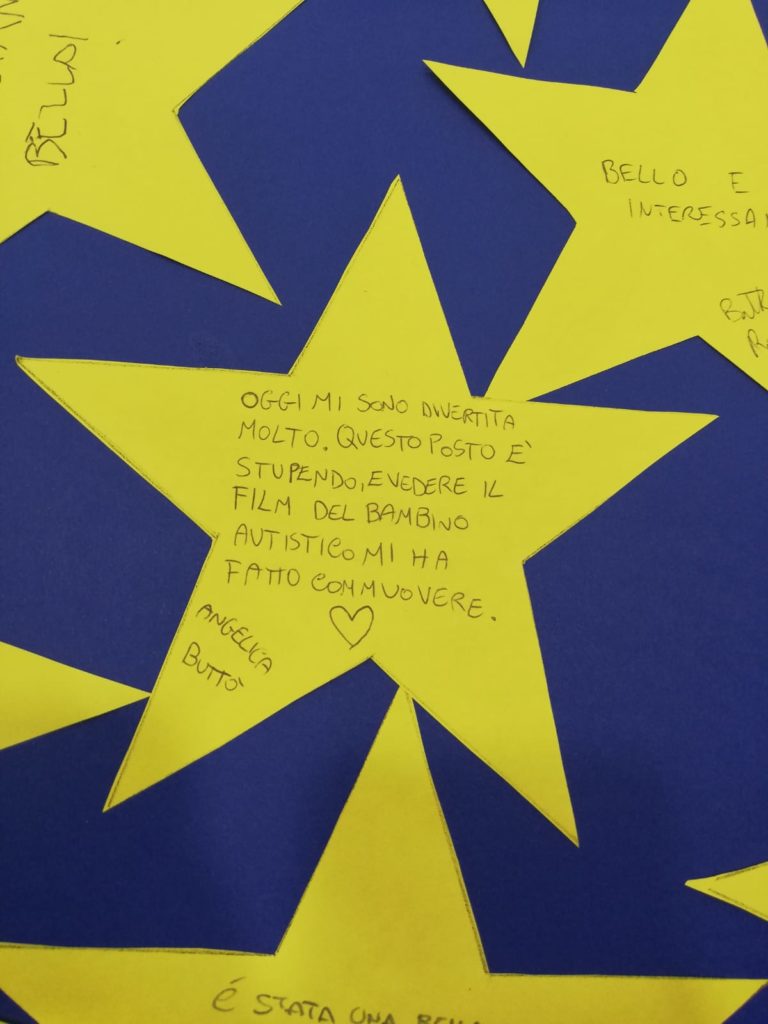 BELLO!
BELLO E
OGGI MI SONO DIVERTITA
MOLTO. QUESTO POSTO È
STUPENDO, E VEDERE IL
FILM DEL BAMBINO
AUTISTICO MI HA
FATTO COMMUOVERE.
ANGELICA
BUTTÒ
É STATA UNA